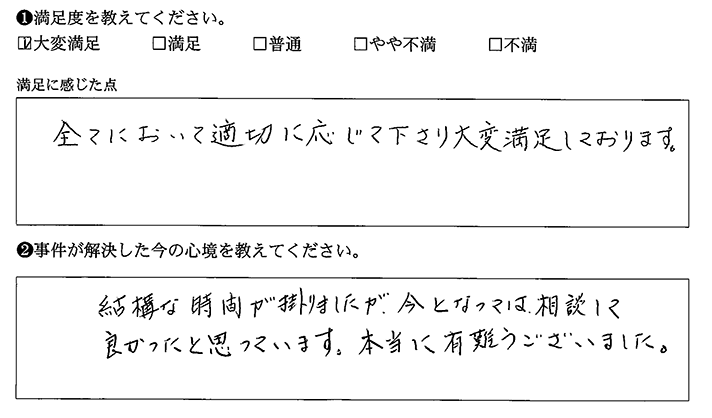 ❶満足度を教えてください。
☑大変満足 □満足 □普通 □やや不満 □不満
満足に感じた点
全てにおいて適切に応じて下さり大変満足しております。
❷事件が解決した今の心境を教えてください。
結構な時間が掛りましたが、今となっては、相談して
良かったと思っています。本当に有難うございました。